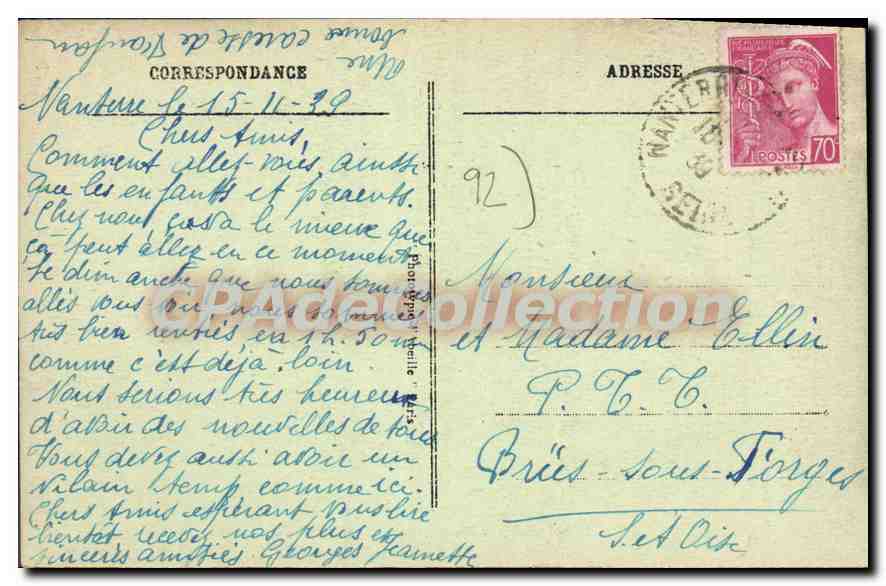 Une
bonne caresse de
CORRESPONDANCE
Nanterre le 15-11-39
Chers Amis,
Comment allez-vous, ainssi
que les enfants et parents.
Chez nous, çava le mieux que
ça peut allez en ce moment
le dimanche que nous sommes
allés vous voir, nous sommes
très bien rentrés en 1h.50
comme c'est déjà loin
Nous serions très heureux
d'avoir des nouvelles de tous
Vous devez aussi avoir un
vilain temp comme ici.
Chers Amis espérant vous lire
bientôt recevez nos plus
sincères amitiés Georges Jeannette
Phototypie Abeille Paris
92
ADRESSE
NANTERRE
SEINE
RÉPUBLIQUE FRANÇAISE
POSTES 70c
Monsieur
et Madame Ellin
P.T.T.
Briis-sous-Forges
S. et Oise
CPAdecollection